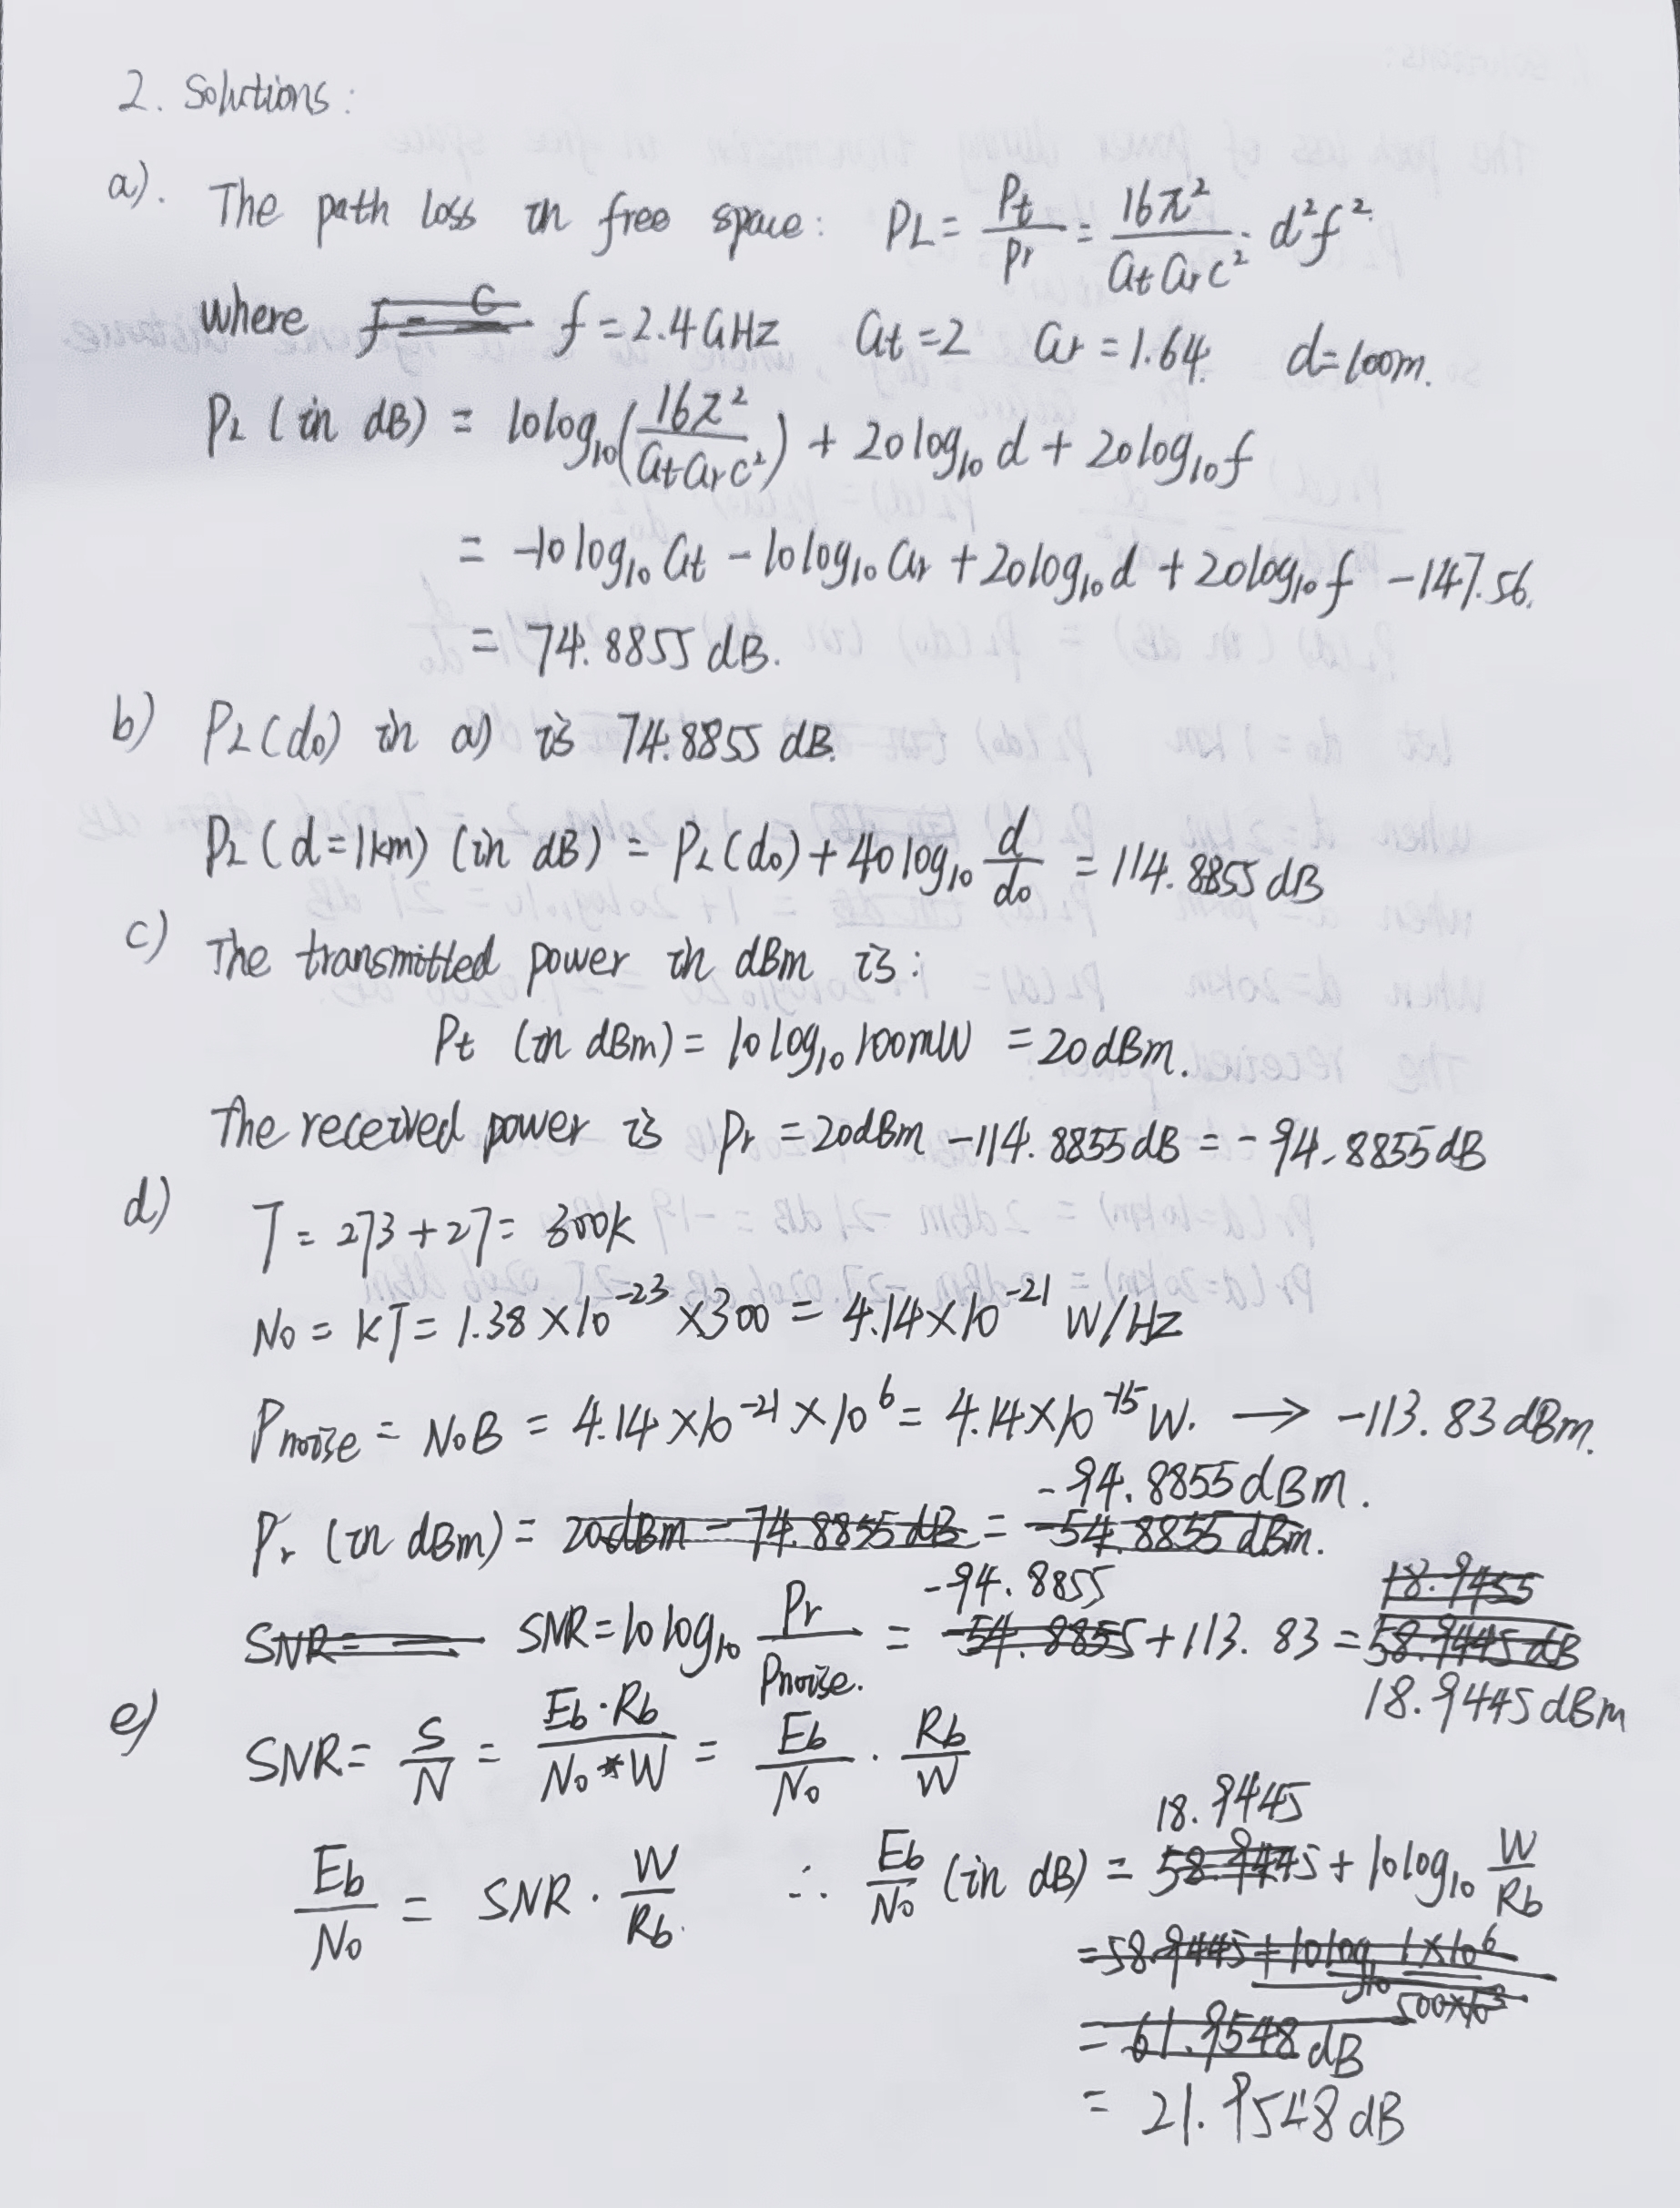 2. Solutions:
a). The path loss in free space: PL = Pt/Pr = 16π²/(Gt Gr c²) · d²f²
where f = 2.4GHz Gt = 2 Gr = 1.64. d=100m.
PL (in dB) = 10log₁₀(16π²/(Gt Gr c²)) + 20log₁₀ d + 20log₁₀ f
= -10log₁₀ Gt - 10log₁₀ Gr + 20log₁₀ d + 20log₁₀ f - 147.56.
= 74.8855 dB.
b) PL(d₀) in a) is 74.8855 dB.
PL (d=1km) (in dB) = PL(d₀) + 40log₁₀ d/d₀ = 114.8855 dB
c) The transmitted power in dBm is:
Pt (in dBm) = 10log₁₀ 100mW = 20dBm.
The received power is Pr = 20dBm - 114.8855dB = -94.8855dB
d) T = 273 + 27 = 300K
N₀ = KT = 1.38 × 10⁻²³ × 300 = 4.14 × 10⁻²¹ W/Hz
Pnoise = N₀B = 4.14 × 10⁻²¹ × 10⁶ = 4.14 × 10⁻¹⁵ W. → -113.83 dBm.
-94.8855dBm.
Pr (in dBm) = 20dBm - 74.8855dB = -54.8855 dBm.
-94.8855 18.9455
SNR = SNR = 10log₁₀ Pr/Pnoise. = -54.8855 + 113.83 = 58.9445 dB
18.9445dBm
e) SNR = S/N = Eb·Rb/(N₀*W) = Eb/N₀ · Rb/W
18.9445
Eb/N₀ = SNR · W/Rb. ∴ Eb/N₀ (in dB) = 58.9445 + 10log₁₀ W/Rb
= 58.9445 + 10log₁₀ 1×10⁶/500×10³
= 61.9548 dB
= 21.9548 dB